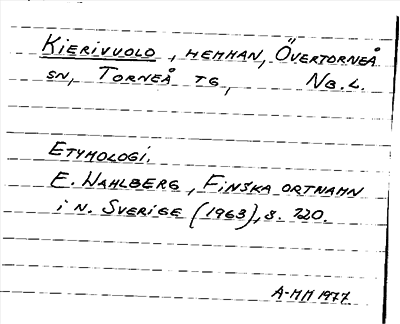 KIERIVUOLO, HEMMAN, ÖVERTORNEÅ
SN, TORNEÅ TG, NB.L.
ETYMOLOGI.
E. WAHLBERG, FINSKA ORTNAMN
i N. SVERIGE (1963), S. 220.
A-MM 1977